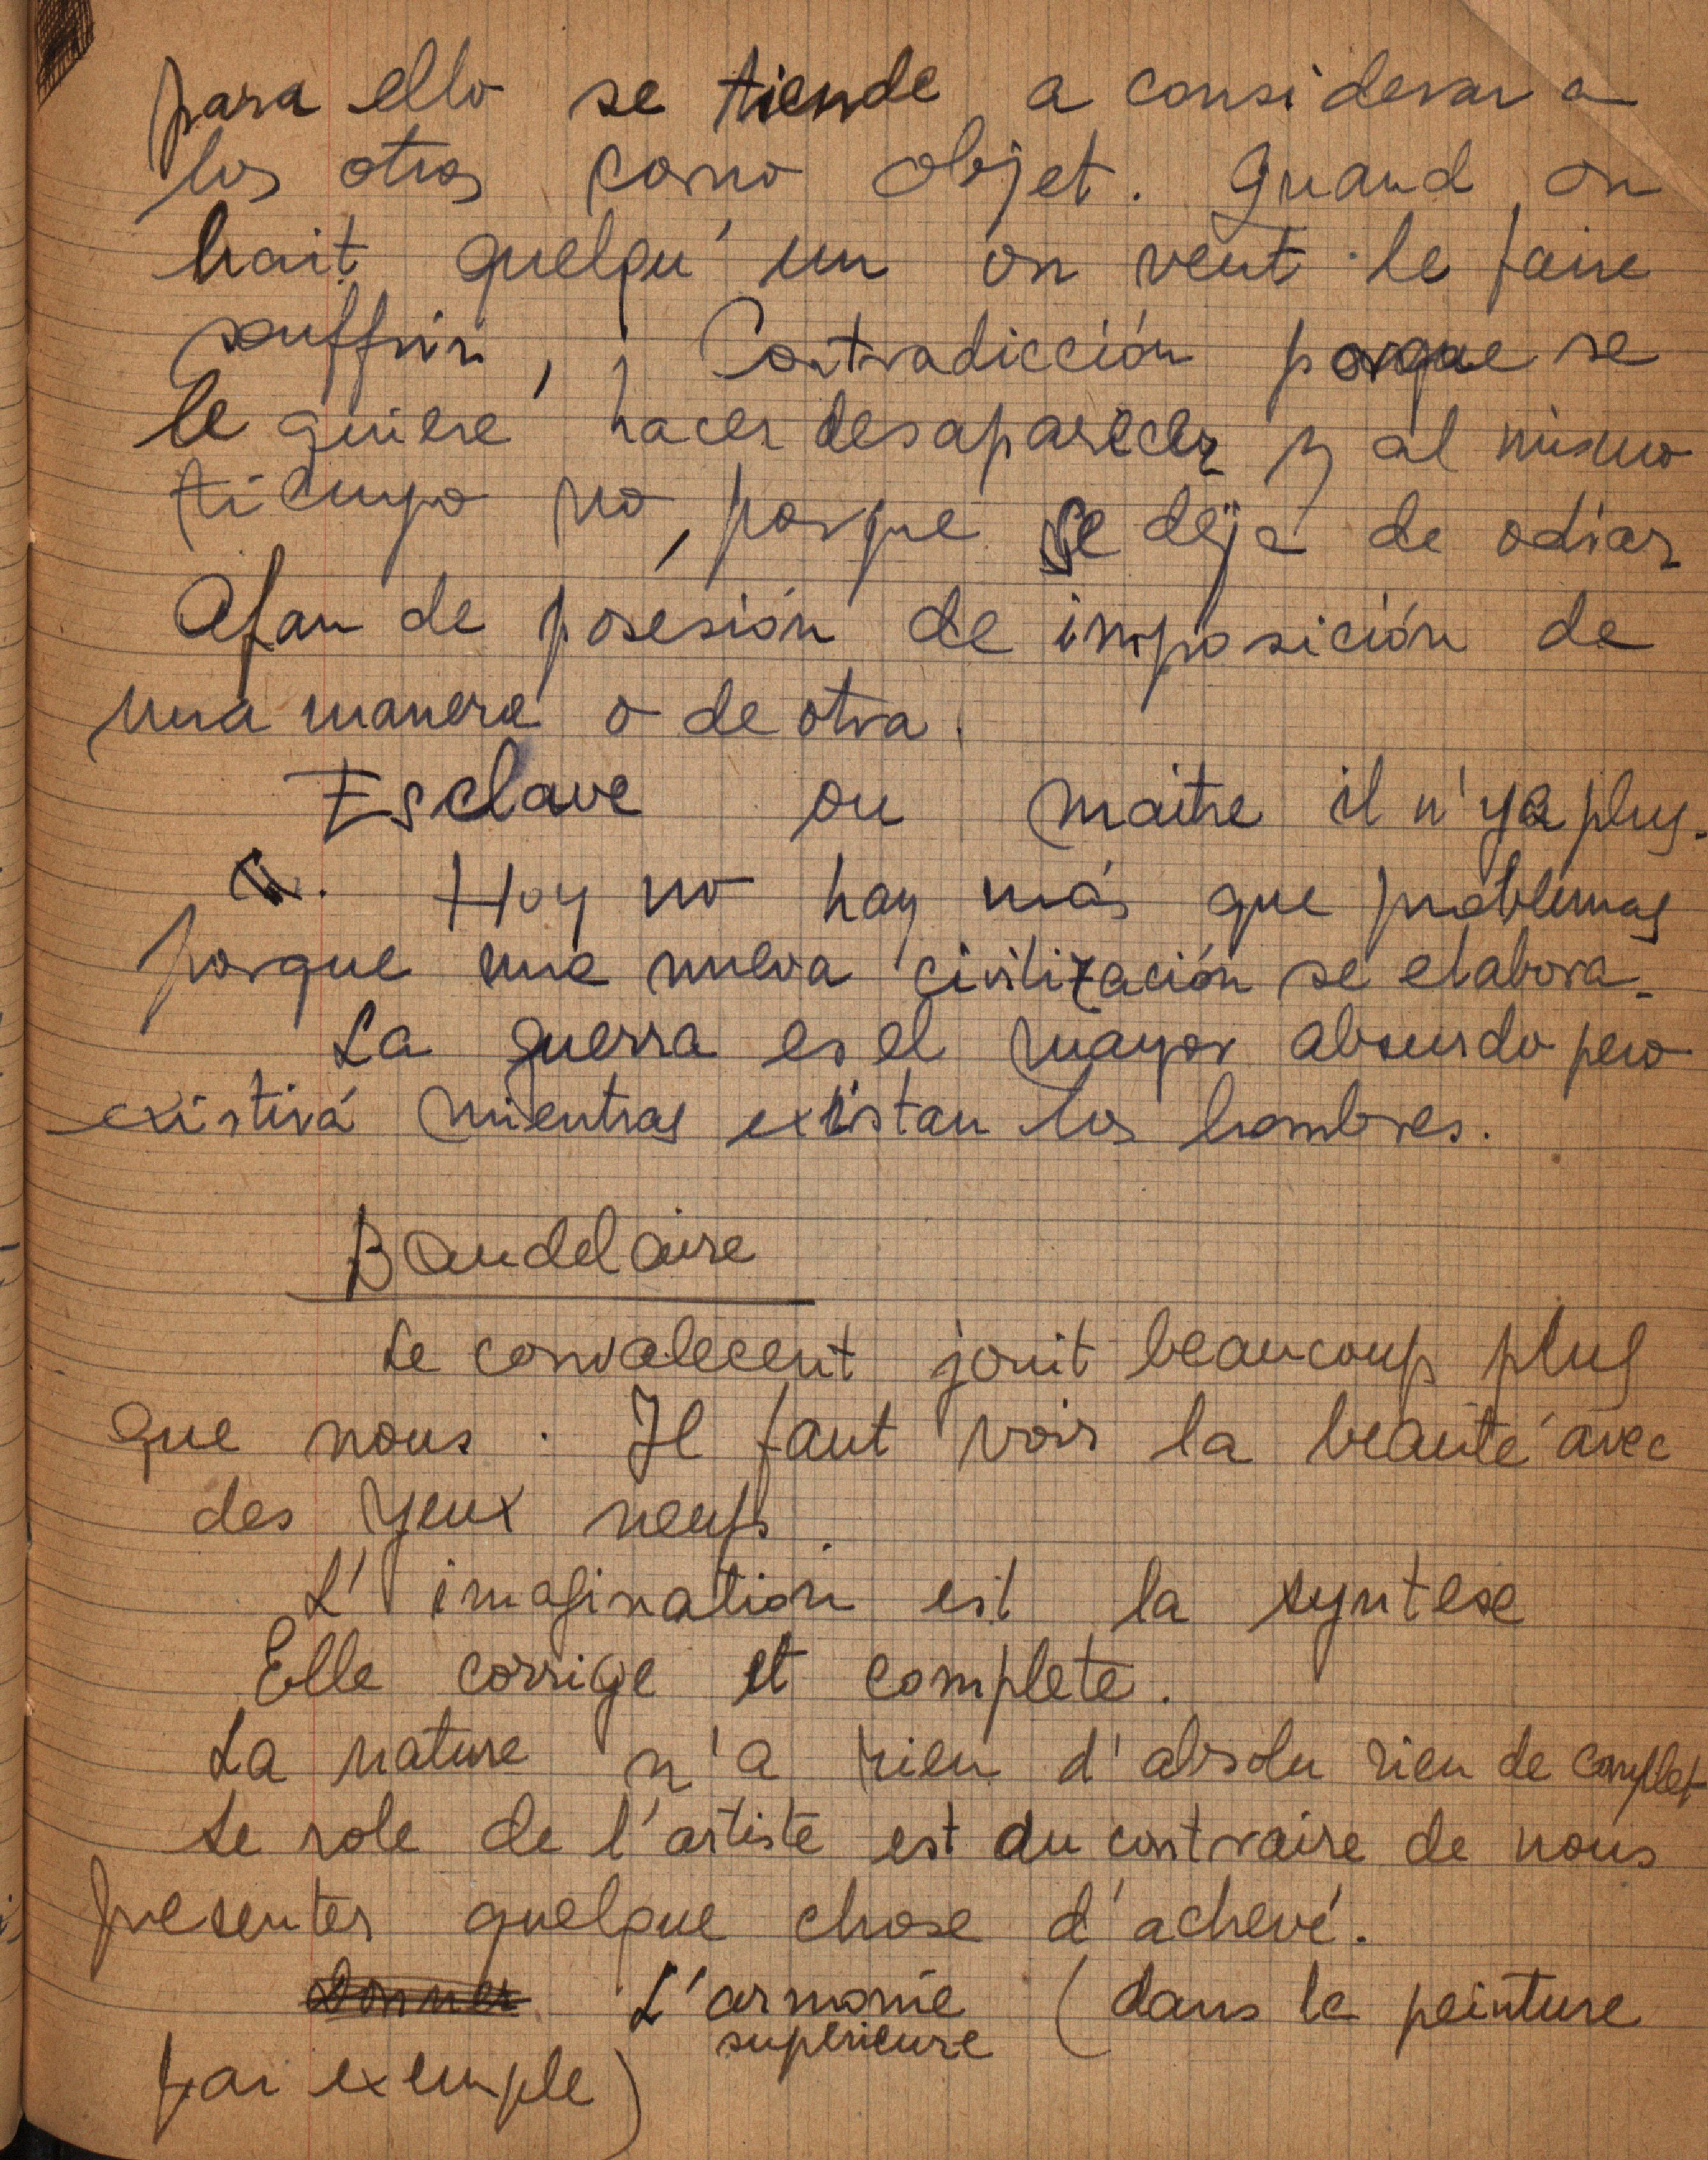 para ello se tiende a considerar a
los otros como objet. Quand on
hait quelqu'un on veut le faire
souffrir, Contradicción porque se
le quiere hacer desaparecer y al mismo
tiempo no, porque se deja de odiar
Afan de posesión de imposición de
una manera o de otra.
Esclave ou maitre il n'ya plus.
Hoy no hay más que problemas
porque una nueva civilización se elabora.
La guerra es el mayor absurdo pero
existirá mientras existan los hombres.
Baudelaire
Le convalecent jouit beaucoup plus
que nous. Il faut voir la beauté avec
des yeux neufs
L'imagination est la syntese
Elle corrige et complete.
La nature n'a rien d'absolu rien de complet
Le role de l'artiste est au contraire de nous
presenter quelque chose d'achevé.
Donner L'armonie (dans le peinture
superieure
par exemple)